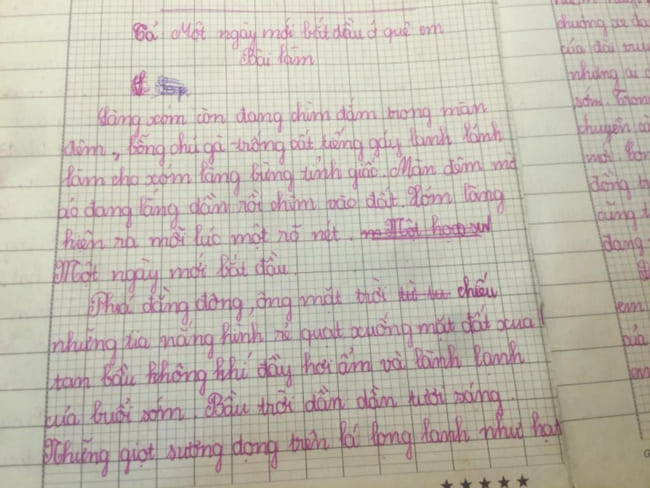 Tả Một ngày mới bắt đầu ở quê em
Bài làm
Làng xóm còn đang chìm đắm trong màn
đêm, bỗng chú gà trống cất tiếng gáy lanh lảnh
làm cho xóm làng bừng tỉnh giấc. Màn đêm mờ
ảo đang lắng dần rồi chìm vào đất. Xóm làng
hiện ra mỗi lúc một rõ nét.
Một ngày mới bắt đầu.
Phía đằng đông, ông mặt trời chiếu
những tia nắng hình rẻ quạt xuống mặt đất xua
tan bầu không khí đầy hơi ẩm và lành lạnh
của buổi sớm. Bầu trời dần dần tươi sáng.
Những giọt sương đọng trên lá long lanh như hạt
chuông xe đạ
của
những ai
sớm.
chuyện
mới.
đồng
cũng
đang
em
của
em